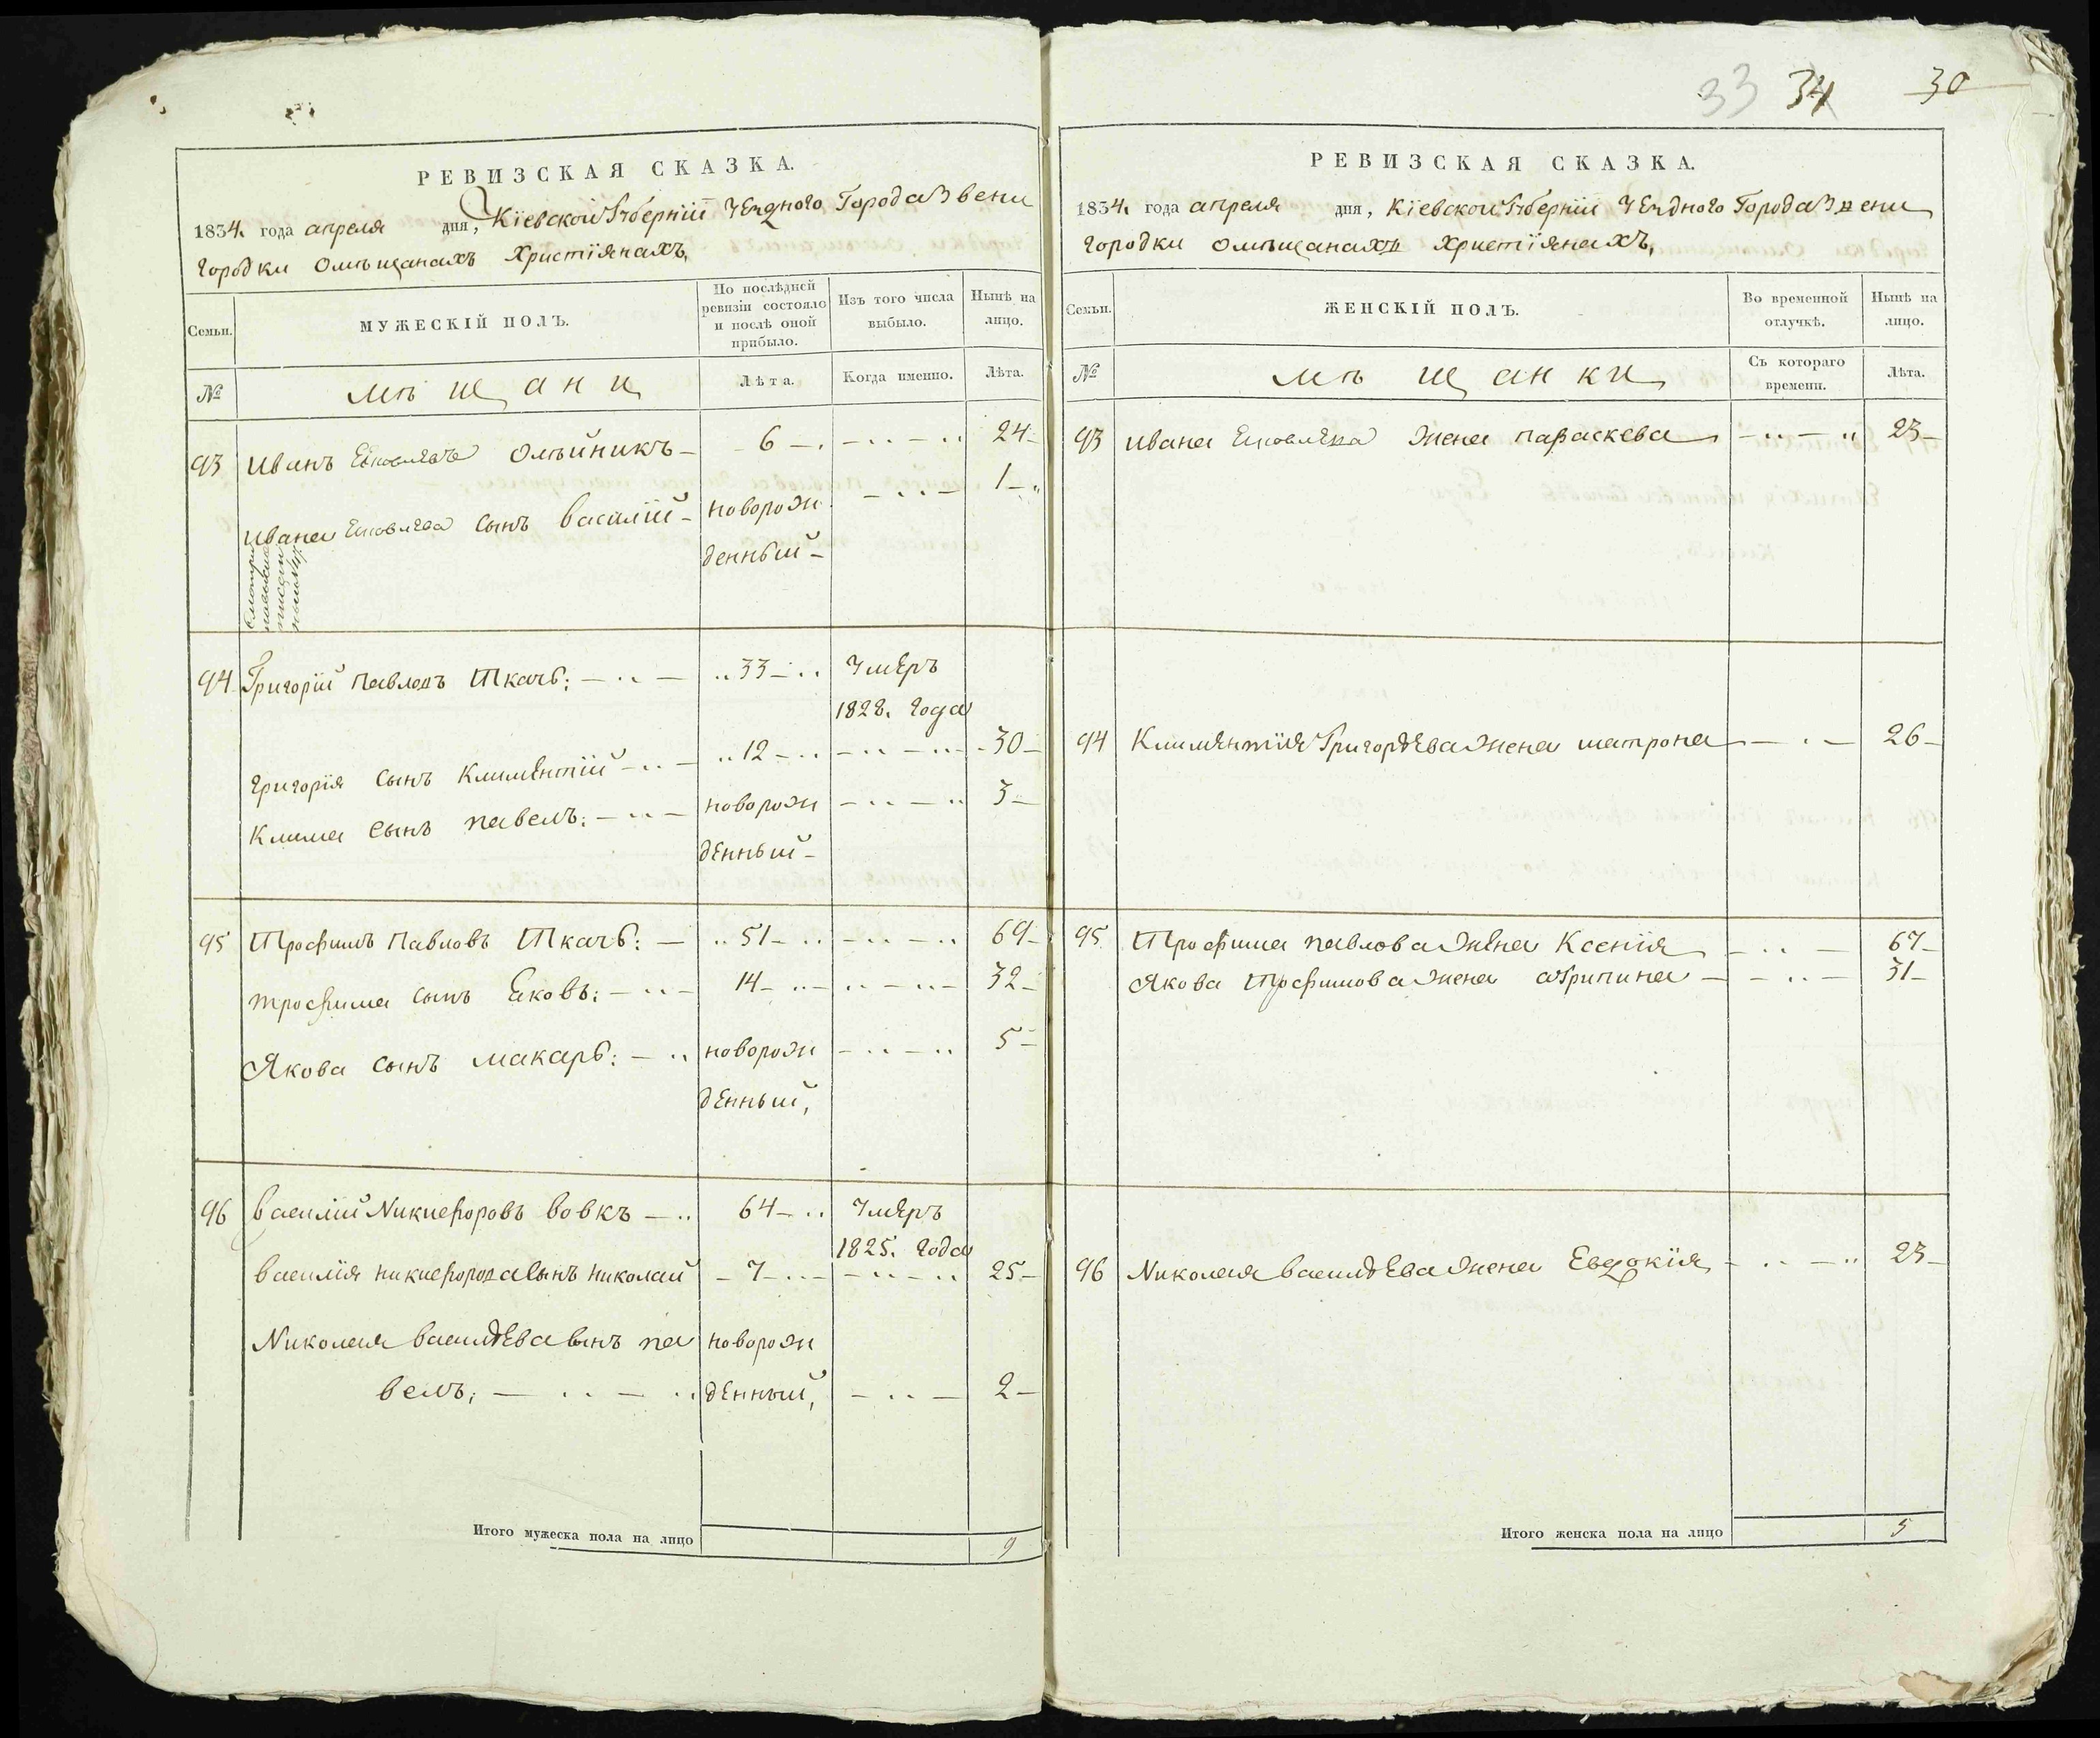 33 34 30
РЕВИЗСКАЯ СКАЗКА.
1834. года апреля дня, Кіевской Губерніи Уездного Города Звени
городки Омѣщанахъ Христіянахъ,
Семьи. МУЖЕСКІЙ ПОЛЪ. По послѣдней ревизіи состояло и послѣ оной прибыло. Изъ того числа выбыло. Нынѣ на лицо.
№ мѣщани Лѣта. Когда именно. Лѣта.
93 Иванъ Омѣйникъ 6 24
Ивана сынъ Василій новорож 1
денный
94 Григорій Павловъ Ткачь; 33 Умеръ
1828. года
Григорія сынъ Климентій 12 30
Клима сынъ павелъ; новорож 3
денный
95 Трофимъ Павловъ Ткачь: 51 69
Трофима сынъ Еаковъ: 14 32
Якова сынъ макаръ: новорож 5
денный,
96 Василій Никифоровъ Вовкъ 64 Умеръ
1825. года
Василія никифорова сынъ николай 7 25
Николая Васильева сынъ па новорож
велъ; денный, 2
Итого мужеска пола на лицо 9
РЕВИЗСКАЯ СКАЗКА.
1834. года апреля дня, Кіевской Губерніи Уездного Города Звени
городки омѣщанахъ христіянахъ,
Семьи. ЖЕНСКІЙ ПОЛЪ. Во временной отлучкѣ. Нынѣ на лицо.
№ мѣщанки Съ котораго времени. Лѣта.
93 Ивана жена параскева 23
94 Климентія Григорьева жена матрона 26
95 Трофима павлова жена Ксенія 67
Якова Трофимова жена агрипина 31
96 Николая Васильева жена Евдокія 23
Итого женска пола на лицо 5